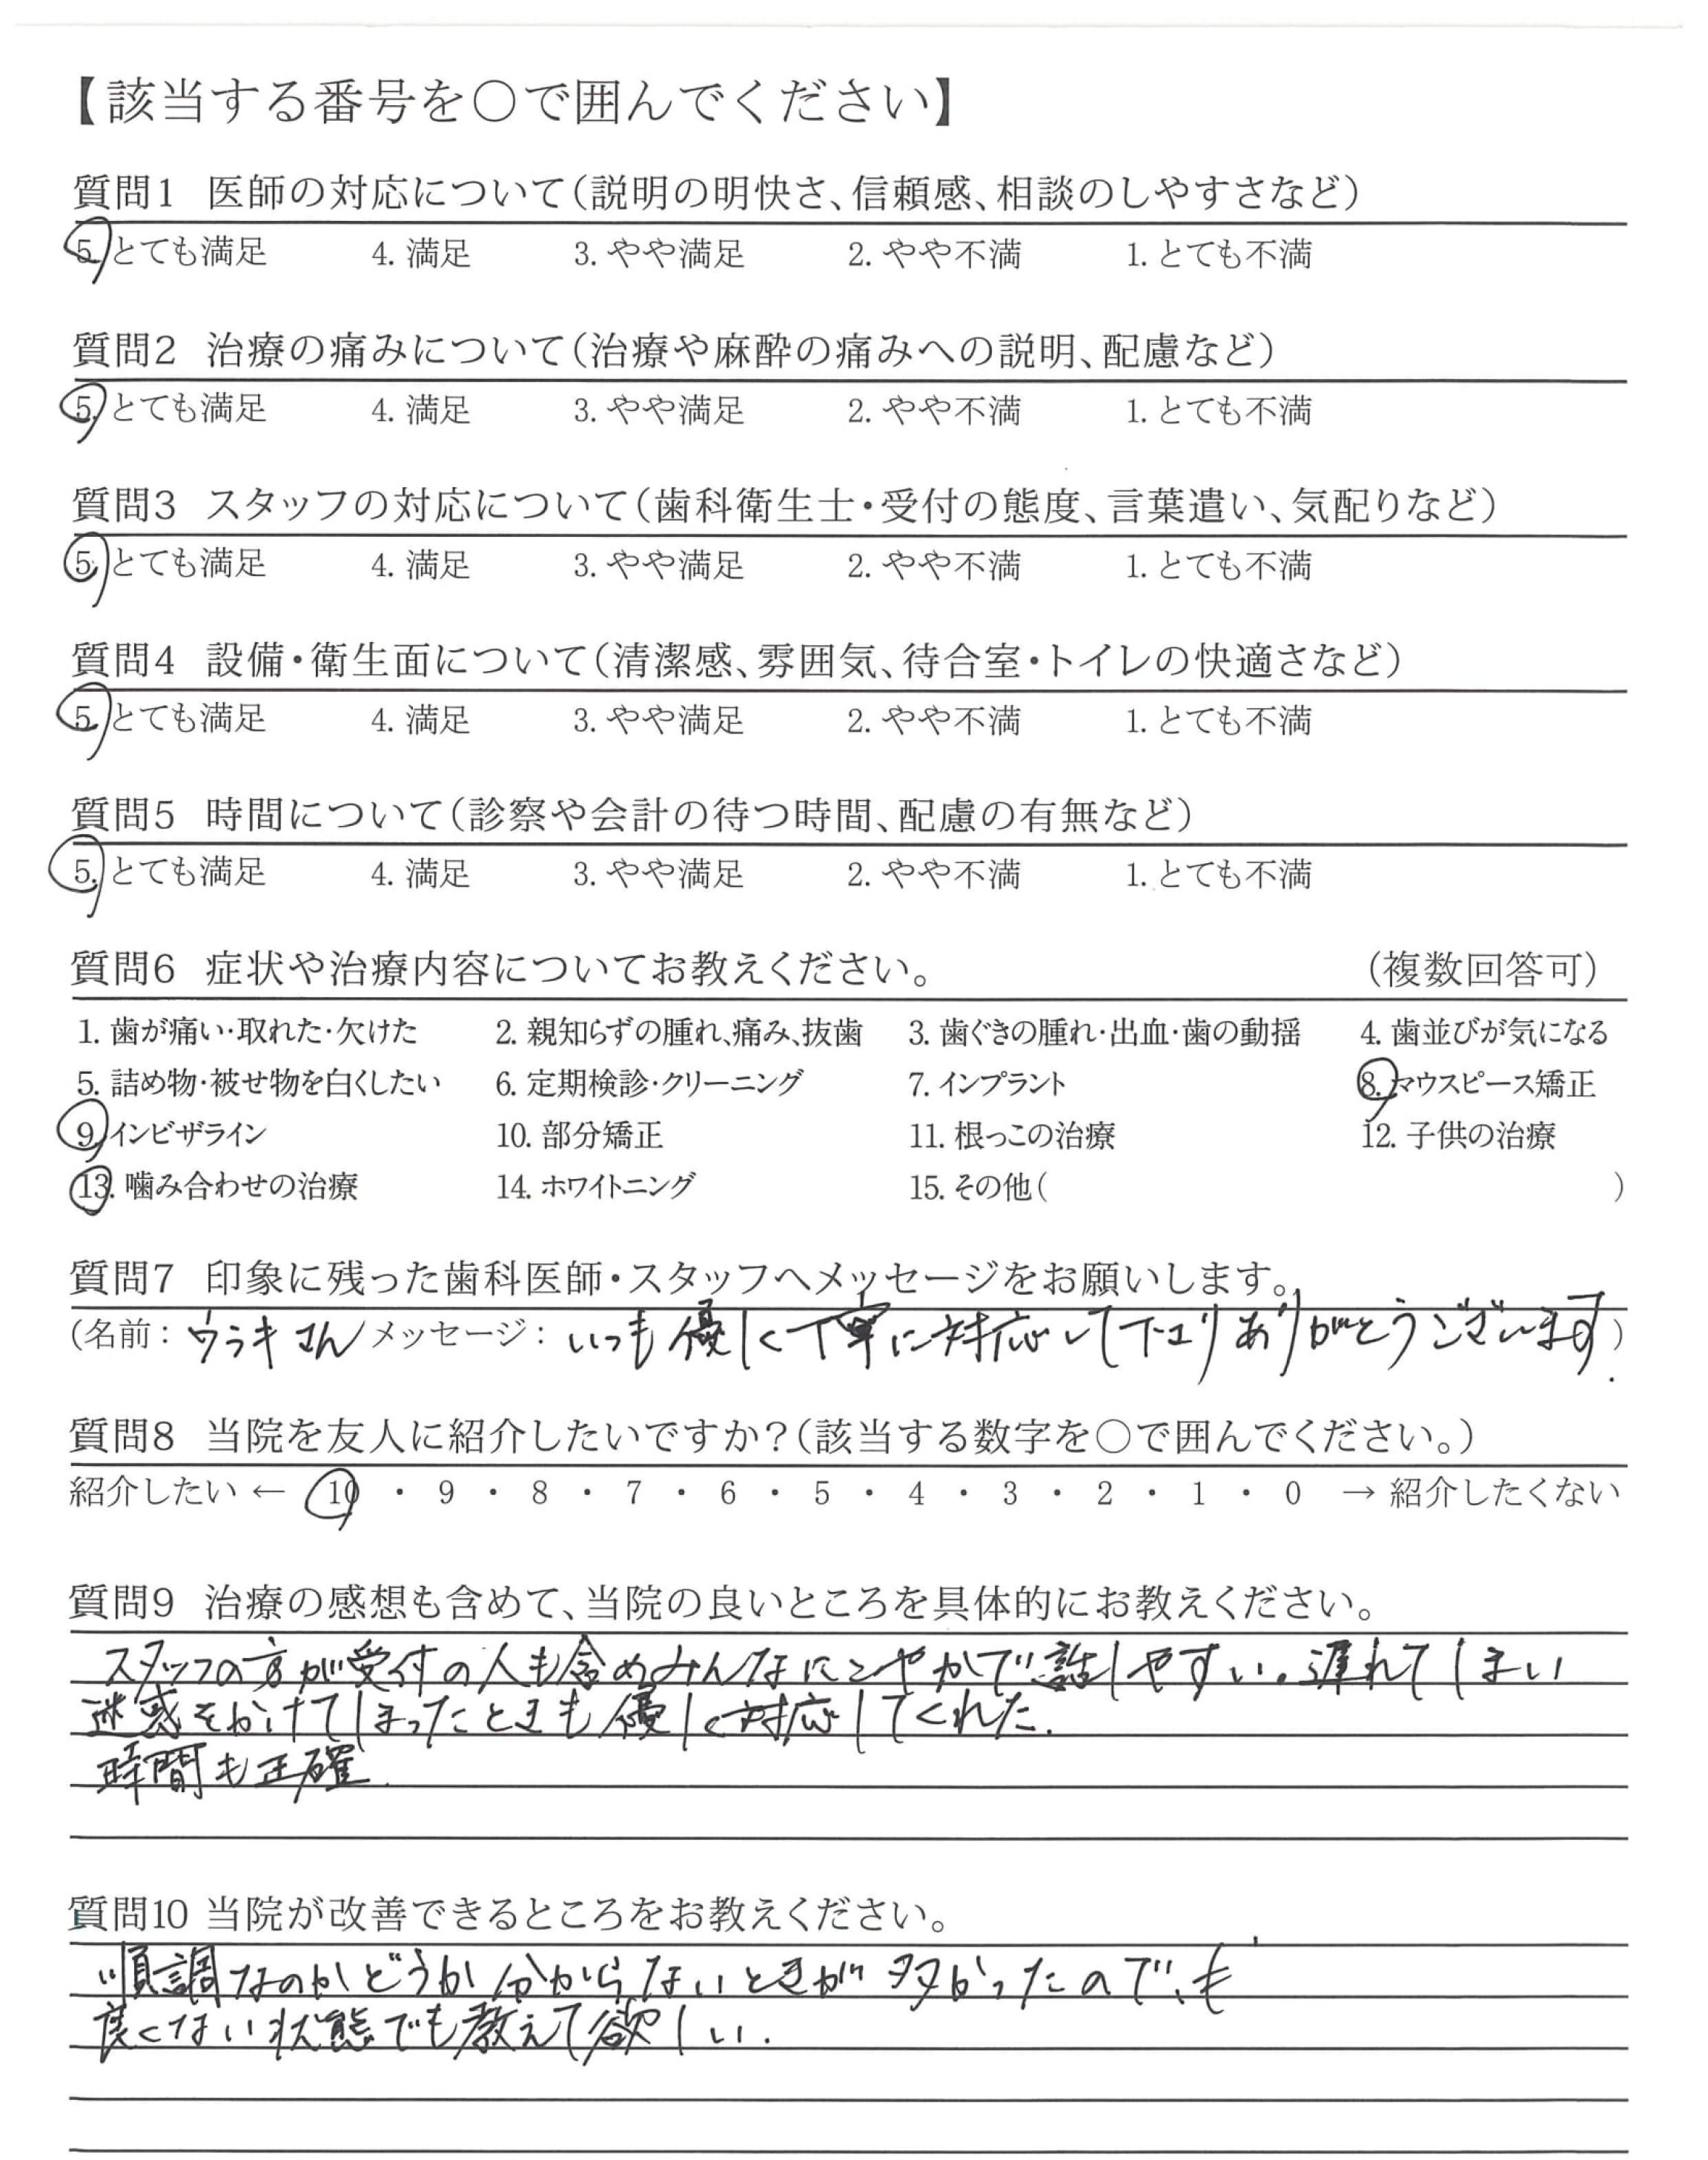 【該当する番号を○で囲んでください】
質問1 医師の対応について（説明の明快さ、信頼感、相談のしやすさなど）
5. とても満足 4. 満足 3. やや満足 2. やや不満 1. とても不満
質問2 治療の痛みについて（治療や麻酔の痛みへの説明、配慮など）
5. とても満足 4. 満足 3. やや満足 2. やや不満 1. とても不満
質問3 スタッフの対応について（歯科衛生士・受付の態度、言葉遣い、気配りなど）
5. とても満足 4. 満足 3. やや満足 2. やや不満 1. とても不満
質問4 設備・衛生面について（清潔感、雰囲気、待合室・トイレの快適さなど）
5. とても満足 4. 満足 3. やや満足 2. やや不満 1. とても不満
質問5 時間について（診察や会計の待つ時間、配慮の有無など）
5. とても満足 4. 満足 3. やや満足 2. やや不満 1. とても不満
質問6 症状や治療内容についてお教えください。 （複数回答可）
1. 歯が痛い・取れた・欠けた 2. 親知らずの腫れ、痛み、抜歯 3. 歯ぐきの腫れ・出血・歯の動揺 4. 歯並びが気になる
5. 詰め物・被せ物を白くしたい 6. 定期検診・クリーニング 7. インプラント 8. マウスピース矯正
9. インビザライン 10. 部分矯正 11. 根っこの治療 12. 子供の治療
13. 噛み合わせの治療 14. ホワイトニング 15. その他（ ）
質問7 印象に残った歯科医師・スタッフへメッセージをお願いします。
（名前：ウラキさん／メッセージ：いつも優しく丁寧に対応して下さりありがとうございます.）
質問8 当院を友人に紹介したいですか？（該当する数字を○で囲んでください。）
紹介したい ← 10 ・ 9 ・ 8 ・ 7 ・ 6 ・ 5 ・ 4 ・ 3 ・ 2 ・ 1 ・ 0 → 紹介したくない
質問9 治療の感想も含めて、当院の良いところを具体的にお教えください。
スタッフの方が受付の人も含めみんなにこやかで話しやすい。遅れてしまい
迷惑をかけてしまったときも優しく対応してくれた.
時間も正確.
質問10 当院が改善できるところをお教えください。
順調なのかどうか分からないときが多かったので、
良くない状態でも教えて欲しい.